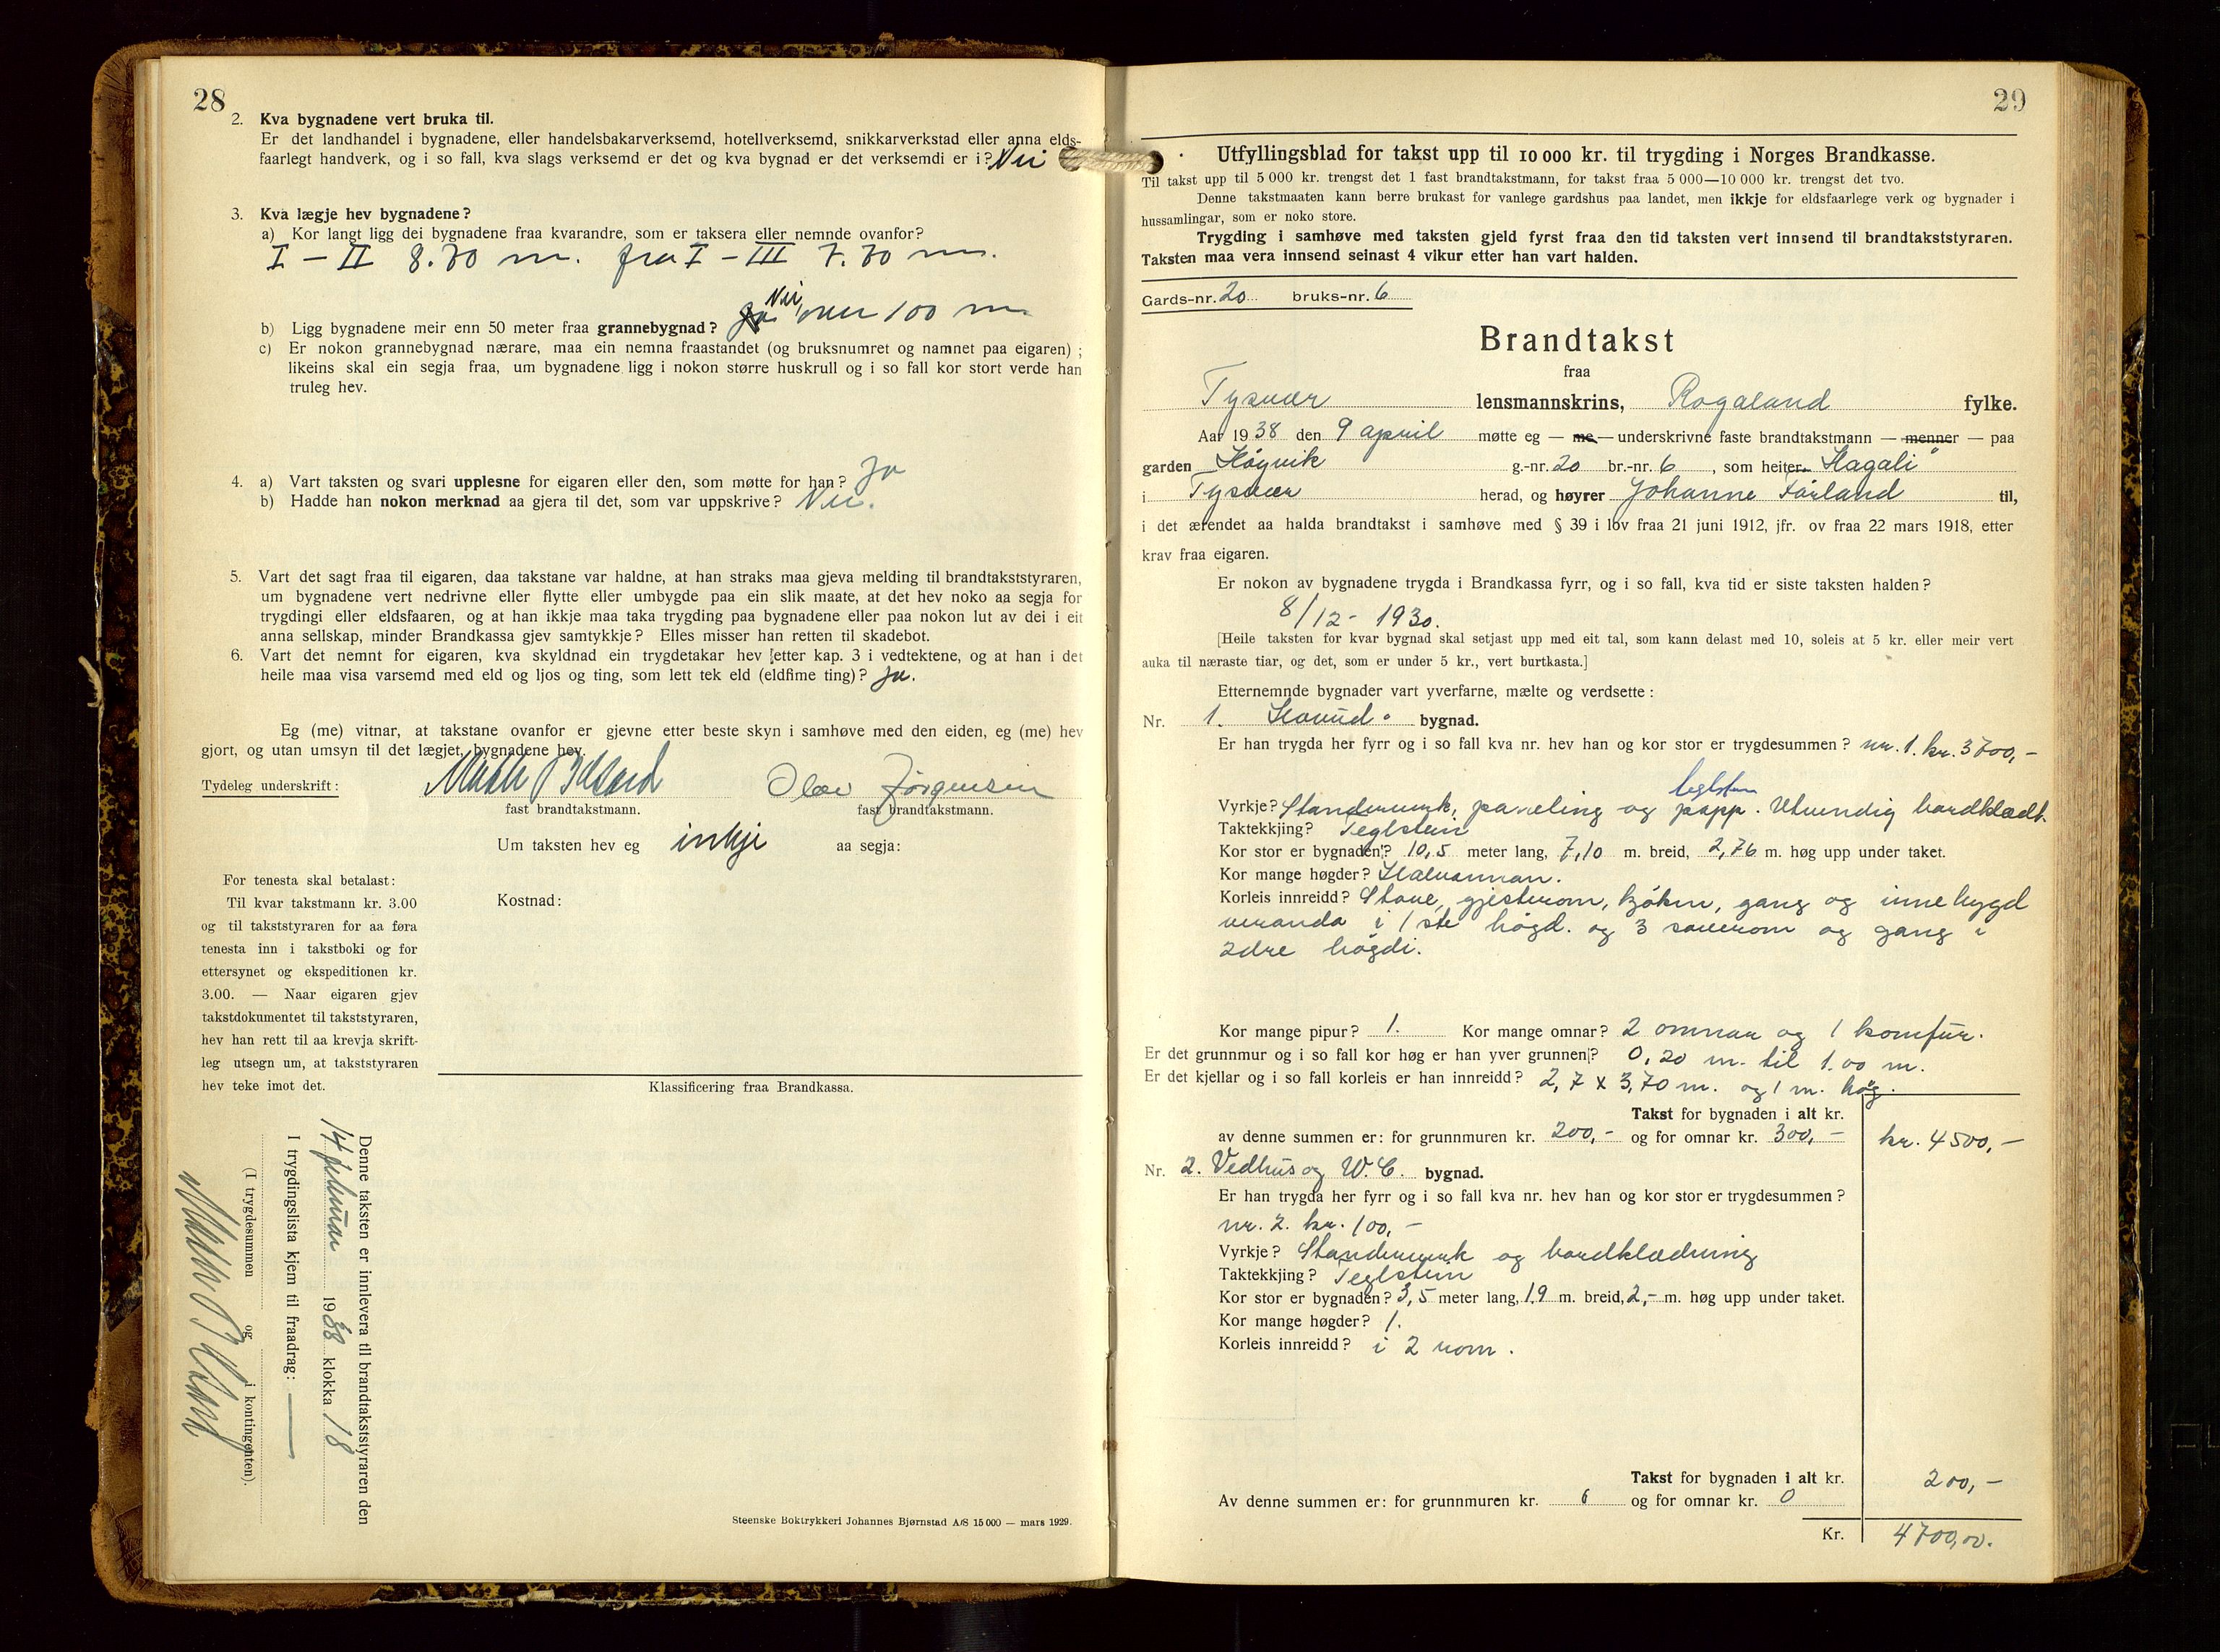 28
2. Kva bygnadene vert bruka til.
Er det landhandel i bygnadene, eller handelsbakarverksemd, hotellverksemd, snikkarverkstad eller anna elds-
faarlegt handverk, og i so fall, kva slags verksemd er det og kva bygnad er det verksemdi er i? Nei
3. Kva lægje hev bygnadene?
a) Kor langt ligg dei bygnadene fraa kvarandre, som er taksera eller nemnde ovanfor?
I – II 8.70 m. fra I – III 7.70 m.
b) Ligg bygnadene meir enn 50 meter fraa grannebygnad? Ja Nei, over 100 m
c) Er nokon grannebygnad nærare, maa ein nemna fraastandet (og bruksnumret og namnet paa eigaren) ;
likeins skal ein segja fraa, um bygnadene ligg i nokon større huskrull og i so fall kor stort verde han
truleg hev.
4. a) Vart taksten og svari upplesne for eigaren eller den, som møtte for han? Ja
b) Hadde han nokon merknad aa gjera til det, som var uppskrive? Nei.
5. Vart det sagt fraa til eigaren, daa takstane var haldne, at han straks maa gjeva melding til brandtakststyraren,
um bygnadene vert nedrivne eller flytte eller umbygde paa ein slik maate, at det hev noko aa segja for
trygdingi eller eldsfaaren, og at han ikkje maa taka trygding paa bygnadene eller paa nokon lut av dei i eit
anna sellskap, minder Brandkassa gjev samtykkje? Elles misser han retten til skadebot.
6. Vart det nemnt for eigaren, kva skyldnad ein trygdetakar hev etter kap. 3 i vedtektene, og at han i det
heile maa visa varsemd med eld og ljos og ting, som lett tek eld (eldfime ting)? Ja.
Eg (me) vitnar, at takstane ovanfor er gjevne etter beste skyn i samhøve med den eiden, eg (me) hev
gjort, og utan umsyn til det lægjet, bygnadene hev.
Tydeleg underskrift: Olav Jørgensen
fast brandtakstmann. fast brandtakstmann.
Um taksten hev eg inkje aa segja:
For tenesta skal betalast:
Til kvar takstmann kr. 3.00
og til takststyraren for aa føra
tenesta inn i takstboki og for
ettersynet og ekspeditionen kr.
3.00. — Naar eigaren gjev
takstdokumentet til takststyraren,
hev han rett til aa krevja skrift-
leg utsegn um, at takststyraren
hev teke imot det.
Kostnad:
Klassificering fraa Brandkassa.
Denne taksten er innlevera til brandtakststyraren den
14 februar 1938 klokka 18
I trygdingslista kjem til fraadrag: —
(I trygdesummen og i kontingenten).
Steenske Boktrykkeri Johannes Bjørnstad A/S 15 000 — mars 1929.
29
Utfyllingsblad for takst upp til 10 000 kr. til trygding i Norges Brandkasse.
Til takst upp til 5 000 kr. trengst det 1 fast brandtakstmann, for takst fraa 5 000—10 000 kr. trengst det tvo.
Denne takstmaaten kann berre brukast for vanlege gardshus paa landet, men ikkje for eldsfaarlege verk og bygnader i
hussamlingar, som er noko store.
Trygding i samhøve med taksten gjeld fyrst fraa den tid taksten vert innsend til brandtakststyraren.
Taksten maa vera innsend seinast 4 vikur etter han vart halden.
Gards-nr. 20 bruks-nr. 6
Brandtakst
fraa
Tysvær lensmannskrins, Rogaland fylke.
Aar 1938 den 9 april møtte eg — me — underskrivne faste brandtakstmann — menner — paa
garden Høgvik g.-nr. 20 br.-nr. 6, som heiter Hagali
i Tysvær herad, og høyrer Johanne Førland til,
i det ærendet aa halda brandtakst i samhøve med § 39 i lov fraa 21 juni 1912, jfr. ov fraa 22 mars 1918, etter
krav fraa eigaren.
Er nokon av bygnadene trygda i Brandkassa fyrr, og i so fall, kva tid er siste taksten halden?
8/12 - 1930.
[Heile taksten for kvar bygnad skal setjast upp med eit tal, som kann delast med 10, soleis at 5 kr. eller meir vert
auka til næraste tiar, og det, som er under 5 kr., vert burtkasta.]
Etternemnde bygnader vart yverfarne, mælte og verdsette :
Nr. 1. Hovud bygnad.
Er han trygda her fyrr og i so fall kva nr. hev han og kor stor er trygdesummen? nr. 1. kr. 3700,-
teglstein
Vyrkje? Standerverk, paneling og papp. Utvendig bordklædt.
Taktekkjing? Teglstein
Kor stor er bygnaden? 10,5 meter lang, 7,10 m. breid, 2,76 m. høg upp under taket.
Kor mange høgder? Halvannan.
Korleis innreidd? Stove, gjesterom, kjøken, gang og innebygd
veranda i 1ste høgd. og 3 soverom og gang i
2dre høgdi.
Kor mange pipur? 1. Kor mange omnar? 2 omnar og 1 komfur.
Er det grunnmur og i so fall kor høg er han yver grunnen? 0,20 m. til 1.00 m.
Er det kjellar og i so fall korleis er han innreidd? 2,7 x 3,70 m. og 1 m. høg.
Takst for bygnaden i alt kr.
av denne summen er: for grunnmuren kr. 200,- og for omnar kr. 300,- kr. 4500,-
Nr. 2. Vedhus og W.C. bygnad.
Er han trygda her fyrr og i so fall kva nr. hev han og kor stor er trygdesummen?
nr. 2. kr. 100,-
Vyrkje? Standerverk og bordklædning
Taktekkjing? Teglstein
Kor stor er bygnaden? 3,5 meter lang, 1,9 m. breid, 2,- m. høg upp under taket.
Kor mange høgder? 1.
Korleis innreidd? i 2 rom.
Takst for bygnaden i alt kr. 200,-
Av denne summen er: for grunnmuren kr. 0 og for omnar kr. 0
Kr. 4700,00.